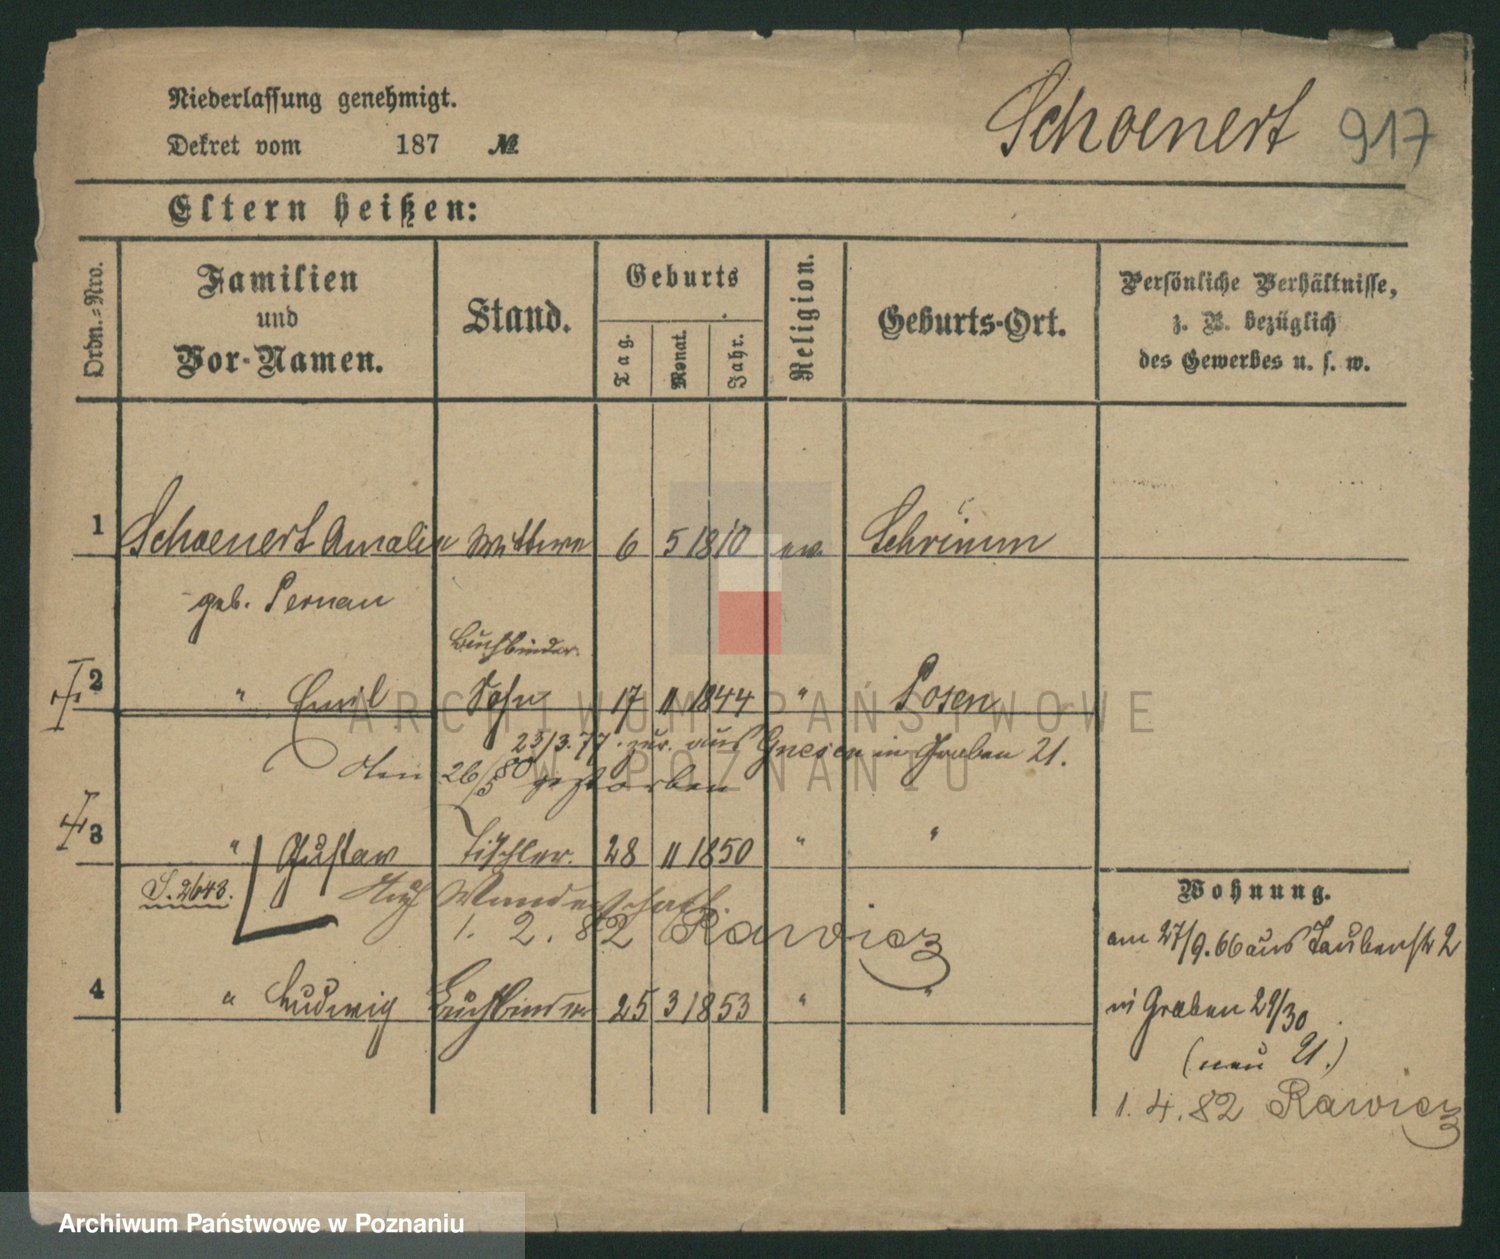 Niederlassung genehmigt.
Dekret vom 187 №
Schoenert 917
Eltern heißen:
Ordn.-Nro.
Familien und Vor-Namen.
Stand.
Geburts
Tag. Monat. Jahr.
Religion.
Geburts-Ort.
Persönliche Verhältnisse,
z. B. bezüglich
des Gewerbes u. s. w.
1 Schoenert Amalie Wittwe 6 5 1810 ev. Schrimm
geb. Pernau
Buchbinder
2 " Emil Sohn 17 11 1844 " Posen
23/3.77. zur. aus Gnesen in Graben 21.
den 26/5 80 gestorben
3 " Gustav Tischler. 28 11 1850 " "
S. 2648. Auf Wanderschaft.
1. 2. 82 Rawicz
4 " Ludwig Buchbinder 25 3 1853 " "
Wohnung.
am 27/9. 66 aus Taubenstr 2
in Graben 29/30
(neu 21.)
1. 4. 82 Rawicz
ARCHIWUM PAŃSTWOWE
W POZNANIU
Archiwum Państwowe w Poznaniu